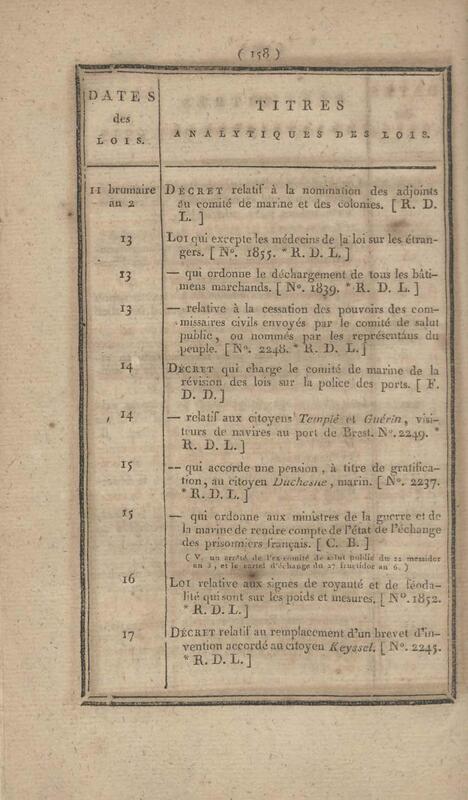 ( 158 )
DATES
des
LOIS.
TITRES
ANALYTIQUES DES LOIS.
11 brumaire
an 2
DÉCRET relatif à la nomination des adjoints
au comité de marine et des colonies. [ R. D.
L. ]
13
LOI qui excepte les médecins de la loi sur les étran-
gers. [ No. 1855. * R. D. L. ]
13
— qui ordonne le déchargement de tous les bâti-
mens marchands. [ No. 1839. * R. D. L. ]
13
— relative à la cessation des pouvoirs des com-
missaires civils envoyés par le comité de salut
public, ou nommés par les représentans du
peuple. [ No. 2248. * R. D. L. ]
14
DÉCRET qui charge le comité de marine de la
révision des lois sur la police des ports. [ F.
D. D. ]
14
— relatif aux citoyens Templé et Guérin, visi-
teurs de navires au port de Brest. No. 2249. *
R. D. L. ]
15
— qui accorde une pension, à titre de gratifica-
tion, au citoyen Duchesne, marin. [ No. 2237.
* R. D. L. ]
15
— qui ordonne aux ministres de la guerre et de
la marine de rendre compte de l'état de l'échange
des prisonniers français. [ C. B. ]
( V. un arrêté de l'ex comité de salut public du 22 messidor
an 3, et le cartel d'échange du 27 fructidor an 6. )
16
LOI relative aux signes de royauté et de féoda-
lité qui sont sur les poids et mesures. [ No. 1852.
* R. D. L. ]
17
DÉCRET relatif au remplacement d'un brevet d'in-
vention accordé au citoyen Keyssel. [ No. 2245.
* R. D. L. ]